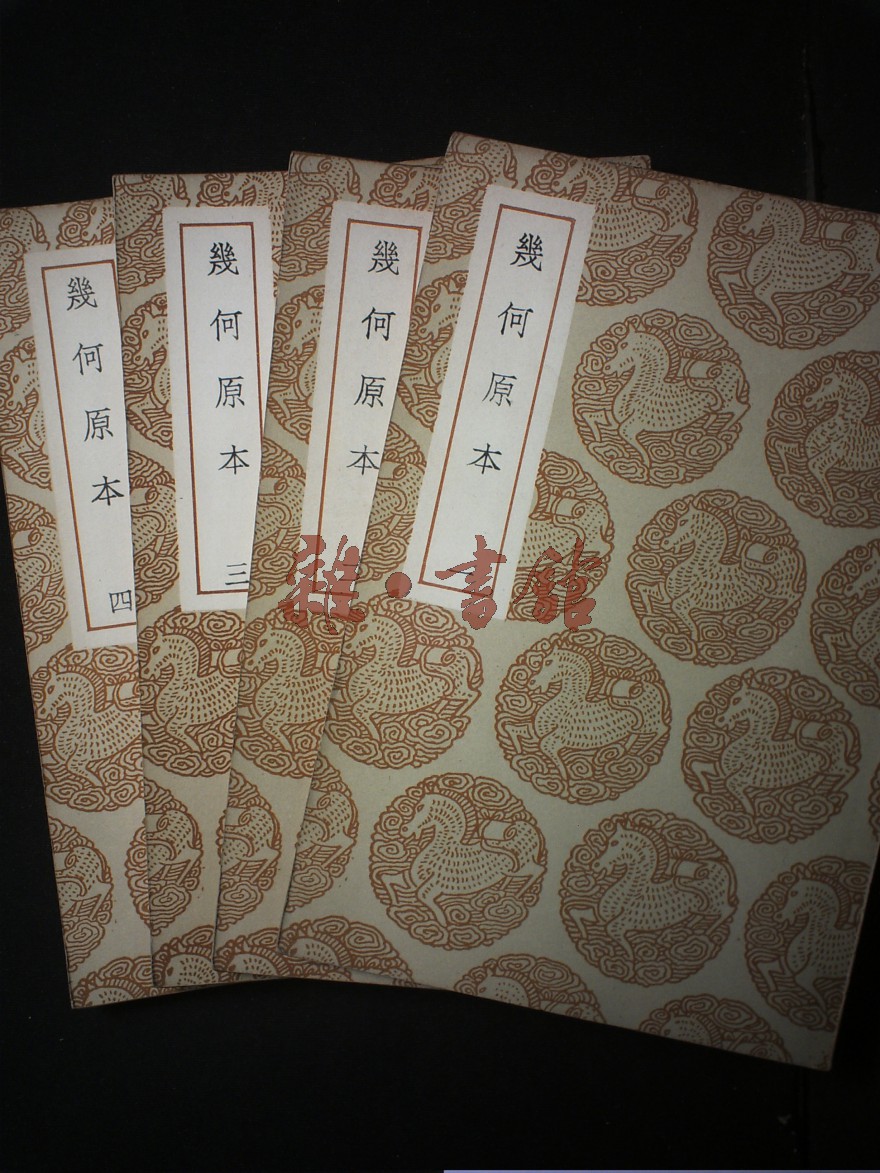 幾何原本
四
幾何原本
三
幾何原本
幾何原本
雜·書館